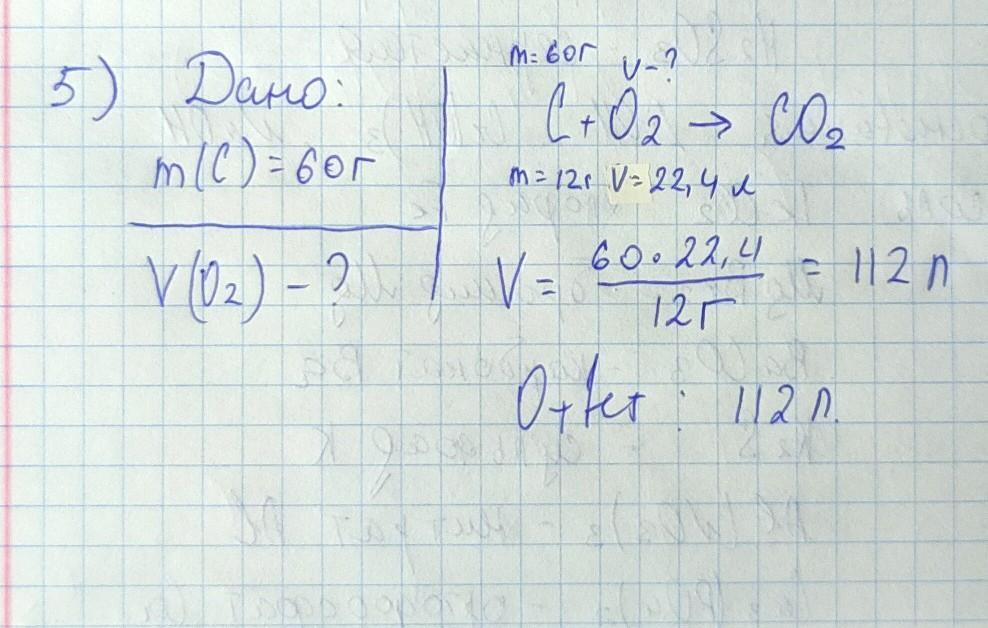 5) Дано:
m(C) = 60г
V(O₂) - ?
m=60г V-?
C + O₂ → CO₂
m=12г V=22,4 л
V = 60·22,4 / 12г = 112 л
Ответ: 112 л.